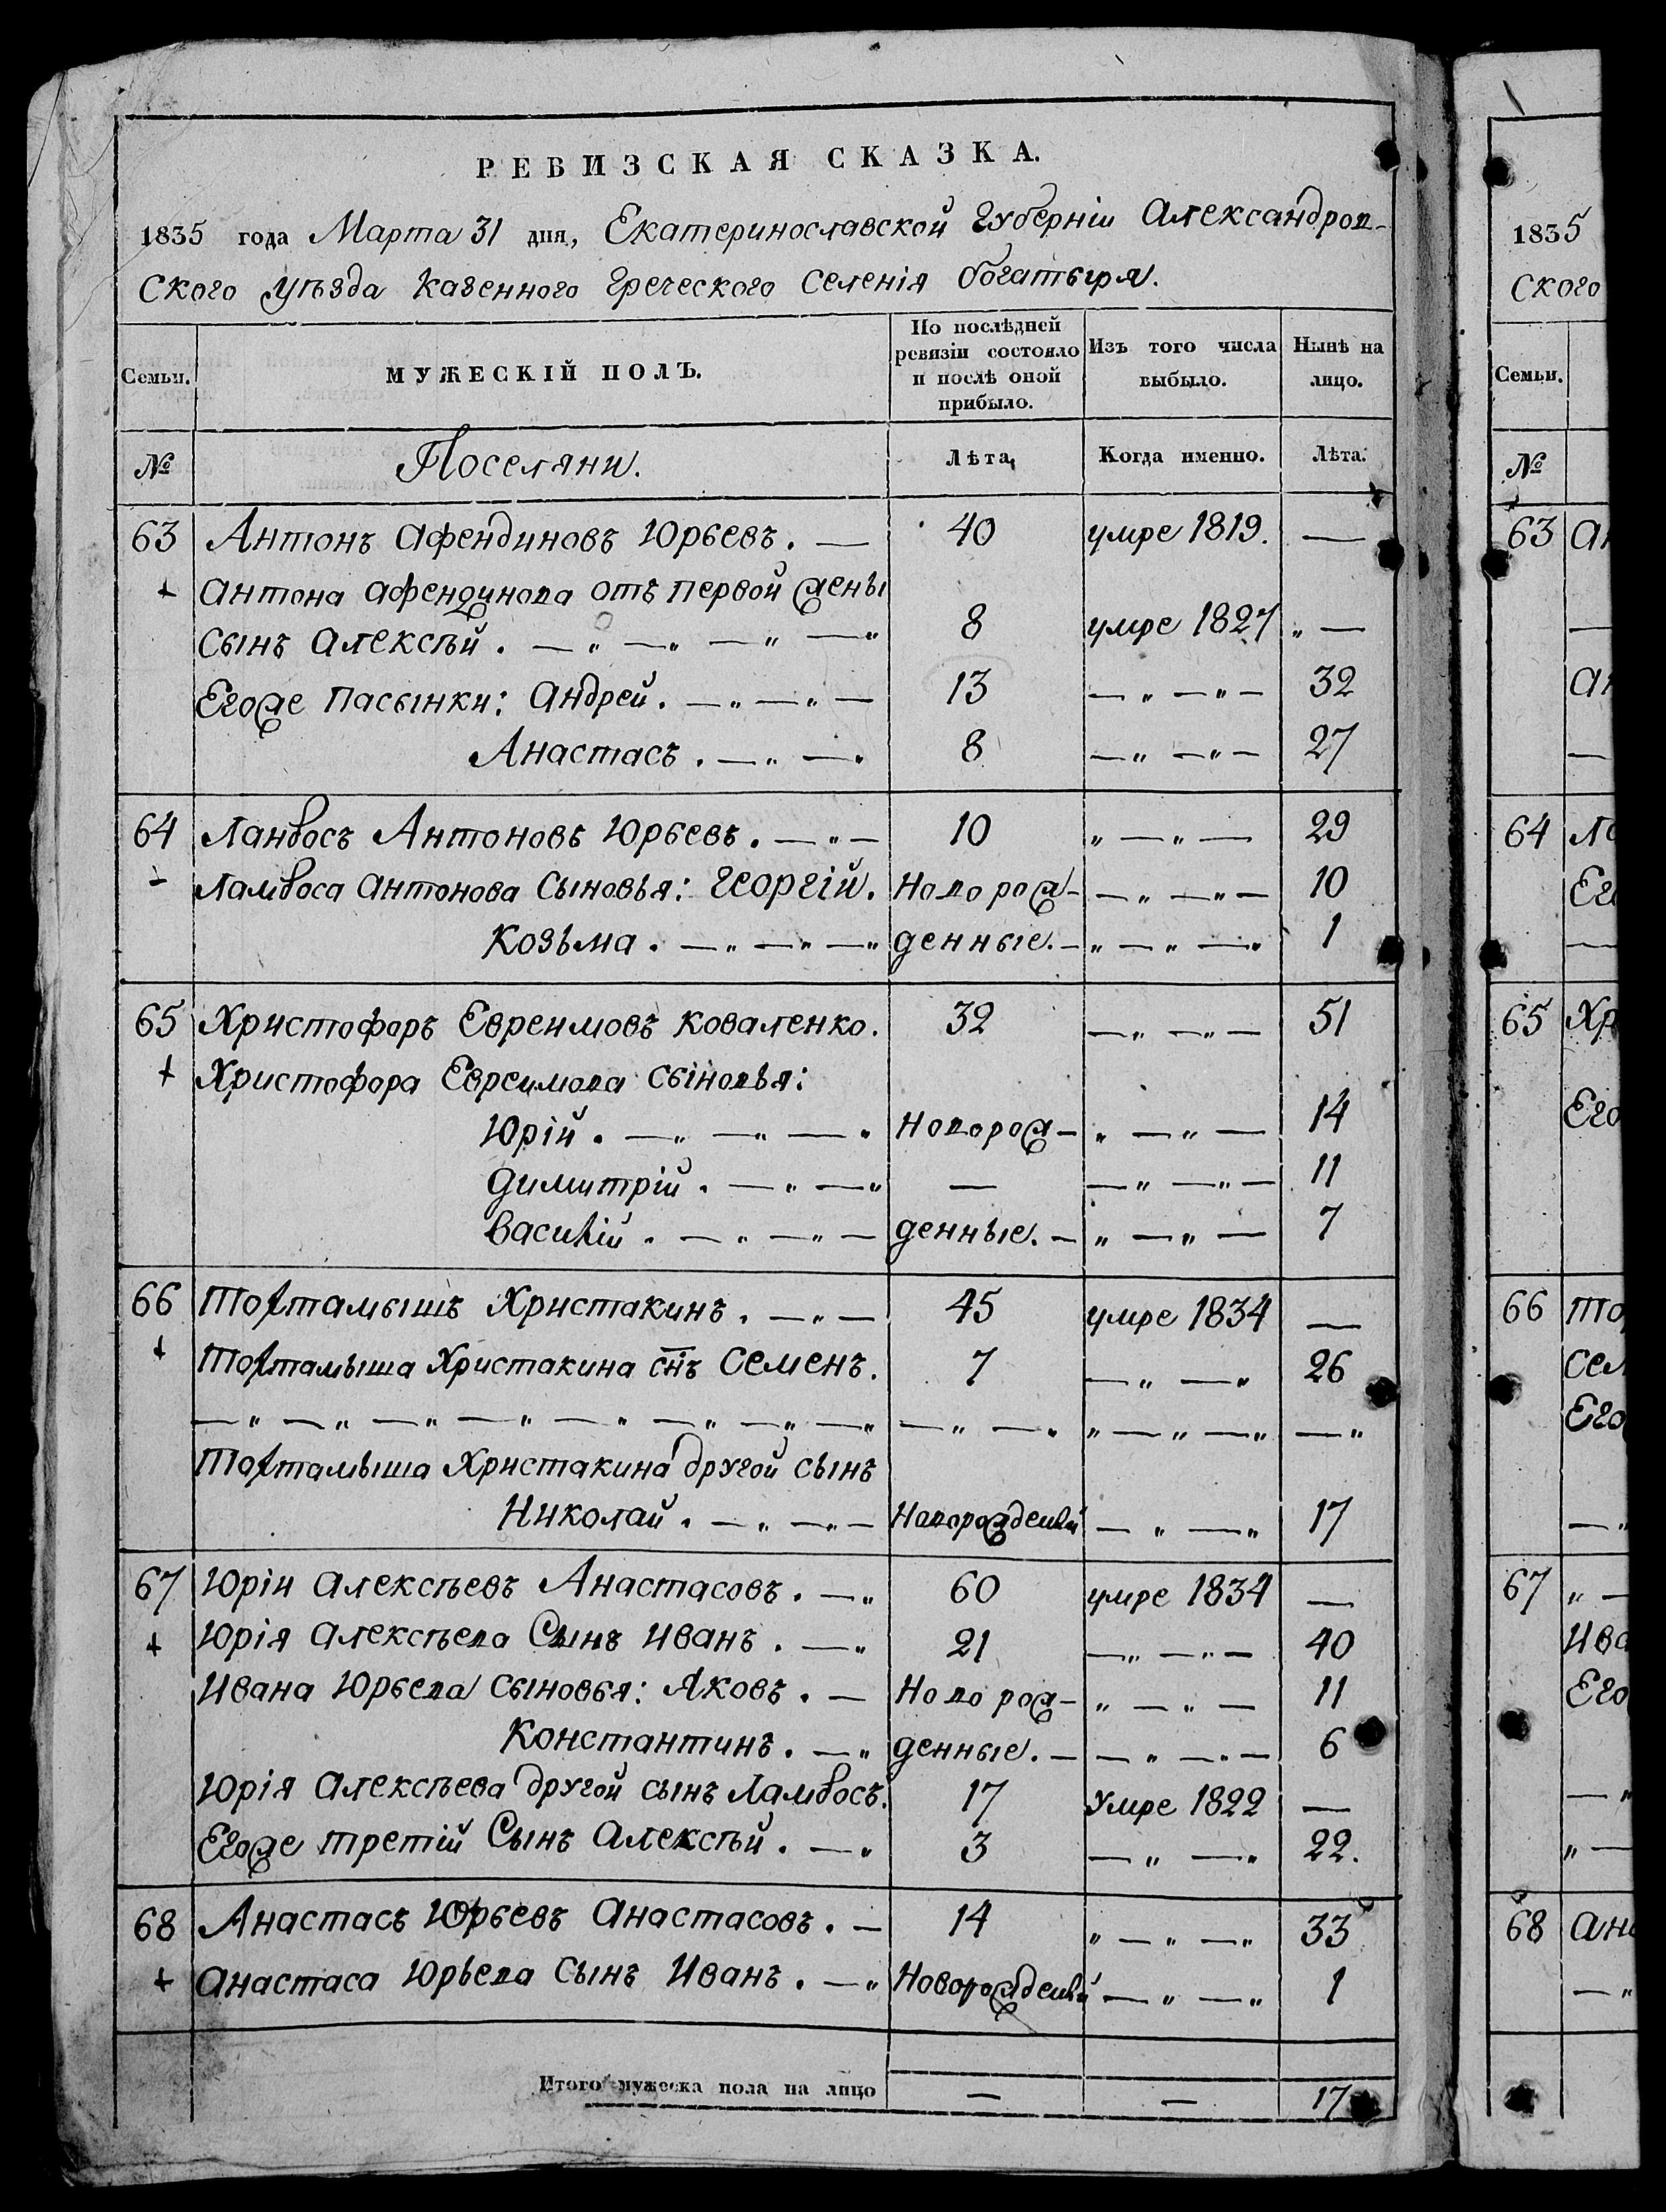 РЕВИЗСКАЯ СКАЗКА.
1835 года Марта 31 дня, Екатеринославской Губерніи Александров-
ского уѣзда казенного Греческого Селенія Богатыря.
Семьи. МУЖЕСКІЙ ПОЛЪ. По послѣдней ревизіи состояло и послѣ оной прибыло. Изъ того числа выбыло. Нынѣ на лицо.
№ Поселяни. Лѣта. Когда именно. Лѣта.
63 Антонъ Афендиновъ Юрьевъ. — 40 умре 1819. —
+ Антона Афендинова отъ первой жены
сынъ Алексѣй. — „ — „ — „ — „ 8 умре 1827 „ —
Егоже пасынки: Андрей. — „ — „ — 13 — „ — „ — 32
Анастасъ. — „ — „ 8 — „ — „ — 27
64 Ланбосъ Антоновъ Юрьевъ. — „ — 10 „ — „ — 29
Ламбоса Антонова Сыновья: Георгій. Новорож- — „ — „ — 10
Козьма. — „ — „ — „ денные. — „ — „ — „ 1
65 Христофоръ Евреимовъ Коваленко. 32 — „ — „ — 51
+ Христофора Евреимова Сыновья:
Юрій. — „ — „ — „ Новорож- „ — „ — 14
Димитрій. — „ — „ — — „ — „ — 11
Василій. — „ — „ — денные. — „ — „ — 7
66 Тохтамышъ Христакинъ. — „ — 45 умре 1834 —
+ Тохтамыша Христакина снъ Семенъ. 7 — „ — „ 26
— „ — „ — „ — „ — „ — „ — „ — „ — „ — „ „ — „ — „ — „
Тохтамыша Христакина другой сынъ
Николай. — „ — „ — Новорожденый — „ — „ 17
67 Юріи Алексѣевъ Анастасовъ. — „ 60 умре 1834 —
+ Юрія Алексѣева Сынъ Иванъ. — „ 21 — „ — „ — 40
Ивана Юрьева Сыновья: Яковъ. — Новорож- „ — „ — 11
Константинъ. — „ денные. — — „ — „ — 6
Юрія Алексѣева другой сынъ Ламбосъ. 17 Умре 1822 —
Егоже третій Сынъ Алексѣй. — „ 3 — „ — „ 22.
68 Анастасъ Юрьевъ Анастасовъ. — 14 „ — „ — „ 33
+ Анастаса Юрьева Сынъ Иванъ. — „ Новорожденый — „ — „ 1
Итого мужеска пола на лицо — — 17
1835
ского
Семьи.
№
63 Ан
—
Ан
—
64 Ла
Его
—
65 Хр
Его
66 То
Сем
Его
— „
67 „ —
Ива
Его
— „
„ —
68 Ана
— „